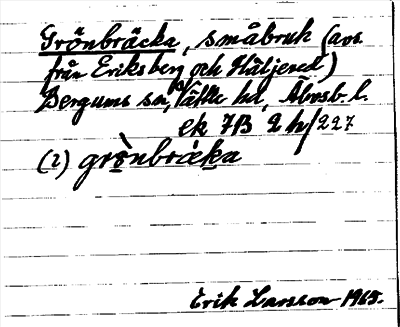 Grönbräcka, småbruk (avs.
från Eriksberg och Hältjered)
Bergums sn, Vättle hd, Älvsb. l.
ek 7B 2 h/227
(2) grò̱nbràḵa
Erik Larsson 1965.